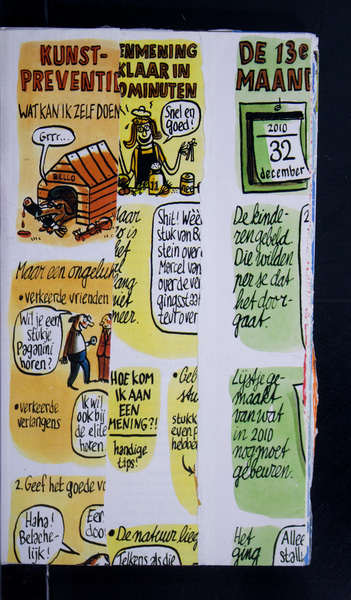 KUNST-
PREVENTI
WAT KAN IK ZELF DOEN
Grrr...
BELLO
Maar een ongeluk
• verkeerde vrienden
Wil je een
stukje
Paganini
horen?
• verkeerde
verlangens
Ik wil
ook bij
de elite
horen.
2. Geef het goede vo
Haha!
Belache-
lijk!
Een
doo
ENMENING
KLAAR IN
OMINUTEN
Snel en
goed!
Maar
is
het
lang
niet
meer.
Shit! Wéé
stuk van Be
stein over
Marcel van
over de ver
gingsstaat
teur over
HOE KOM
IK AAN
EEN
MENING?!
handige
tips!
• Geb
stu
stukk
even p
hebbe
• De natuur lieg
Telkens als die
DE 13e
MAAN
2010
32
december
De kinde-
ren gebeld.
Die wilden
per se dat
het door-
gaat.
Lijstje ge-
maakt
van wat
in 2010
nog moet
gebeuren.
Het
ging
Allee
stall